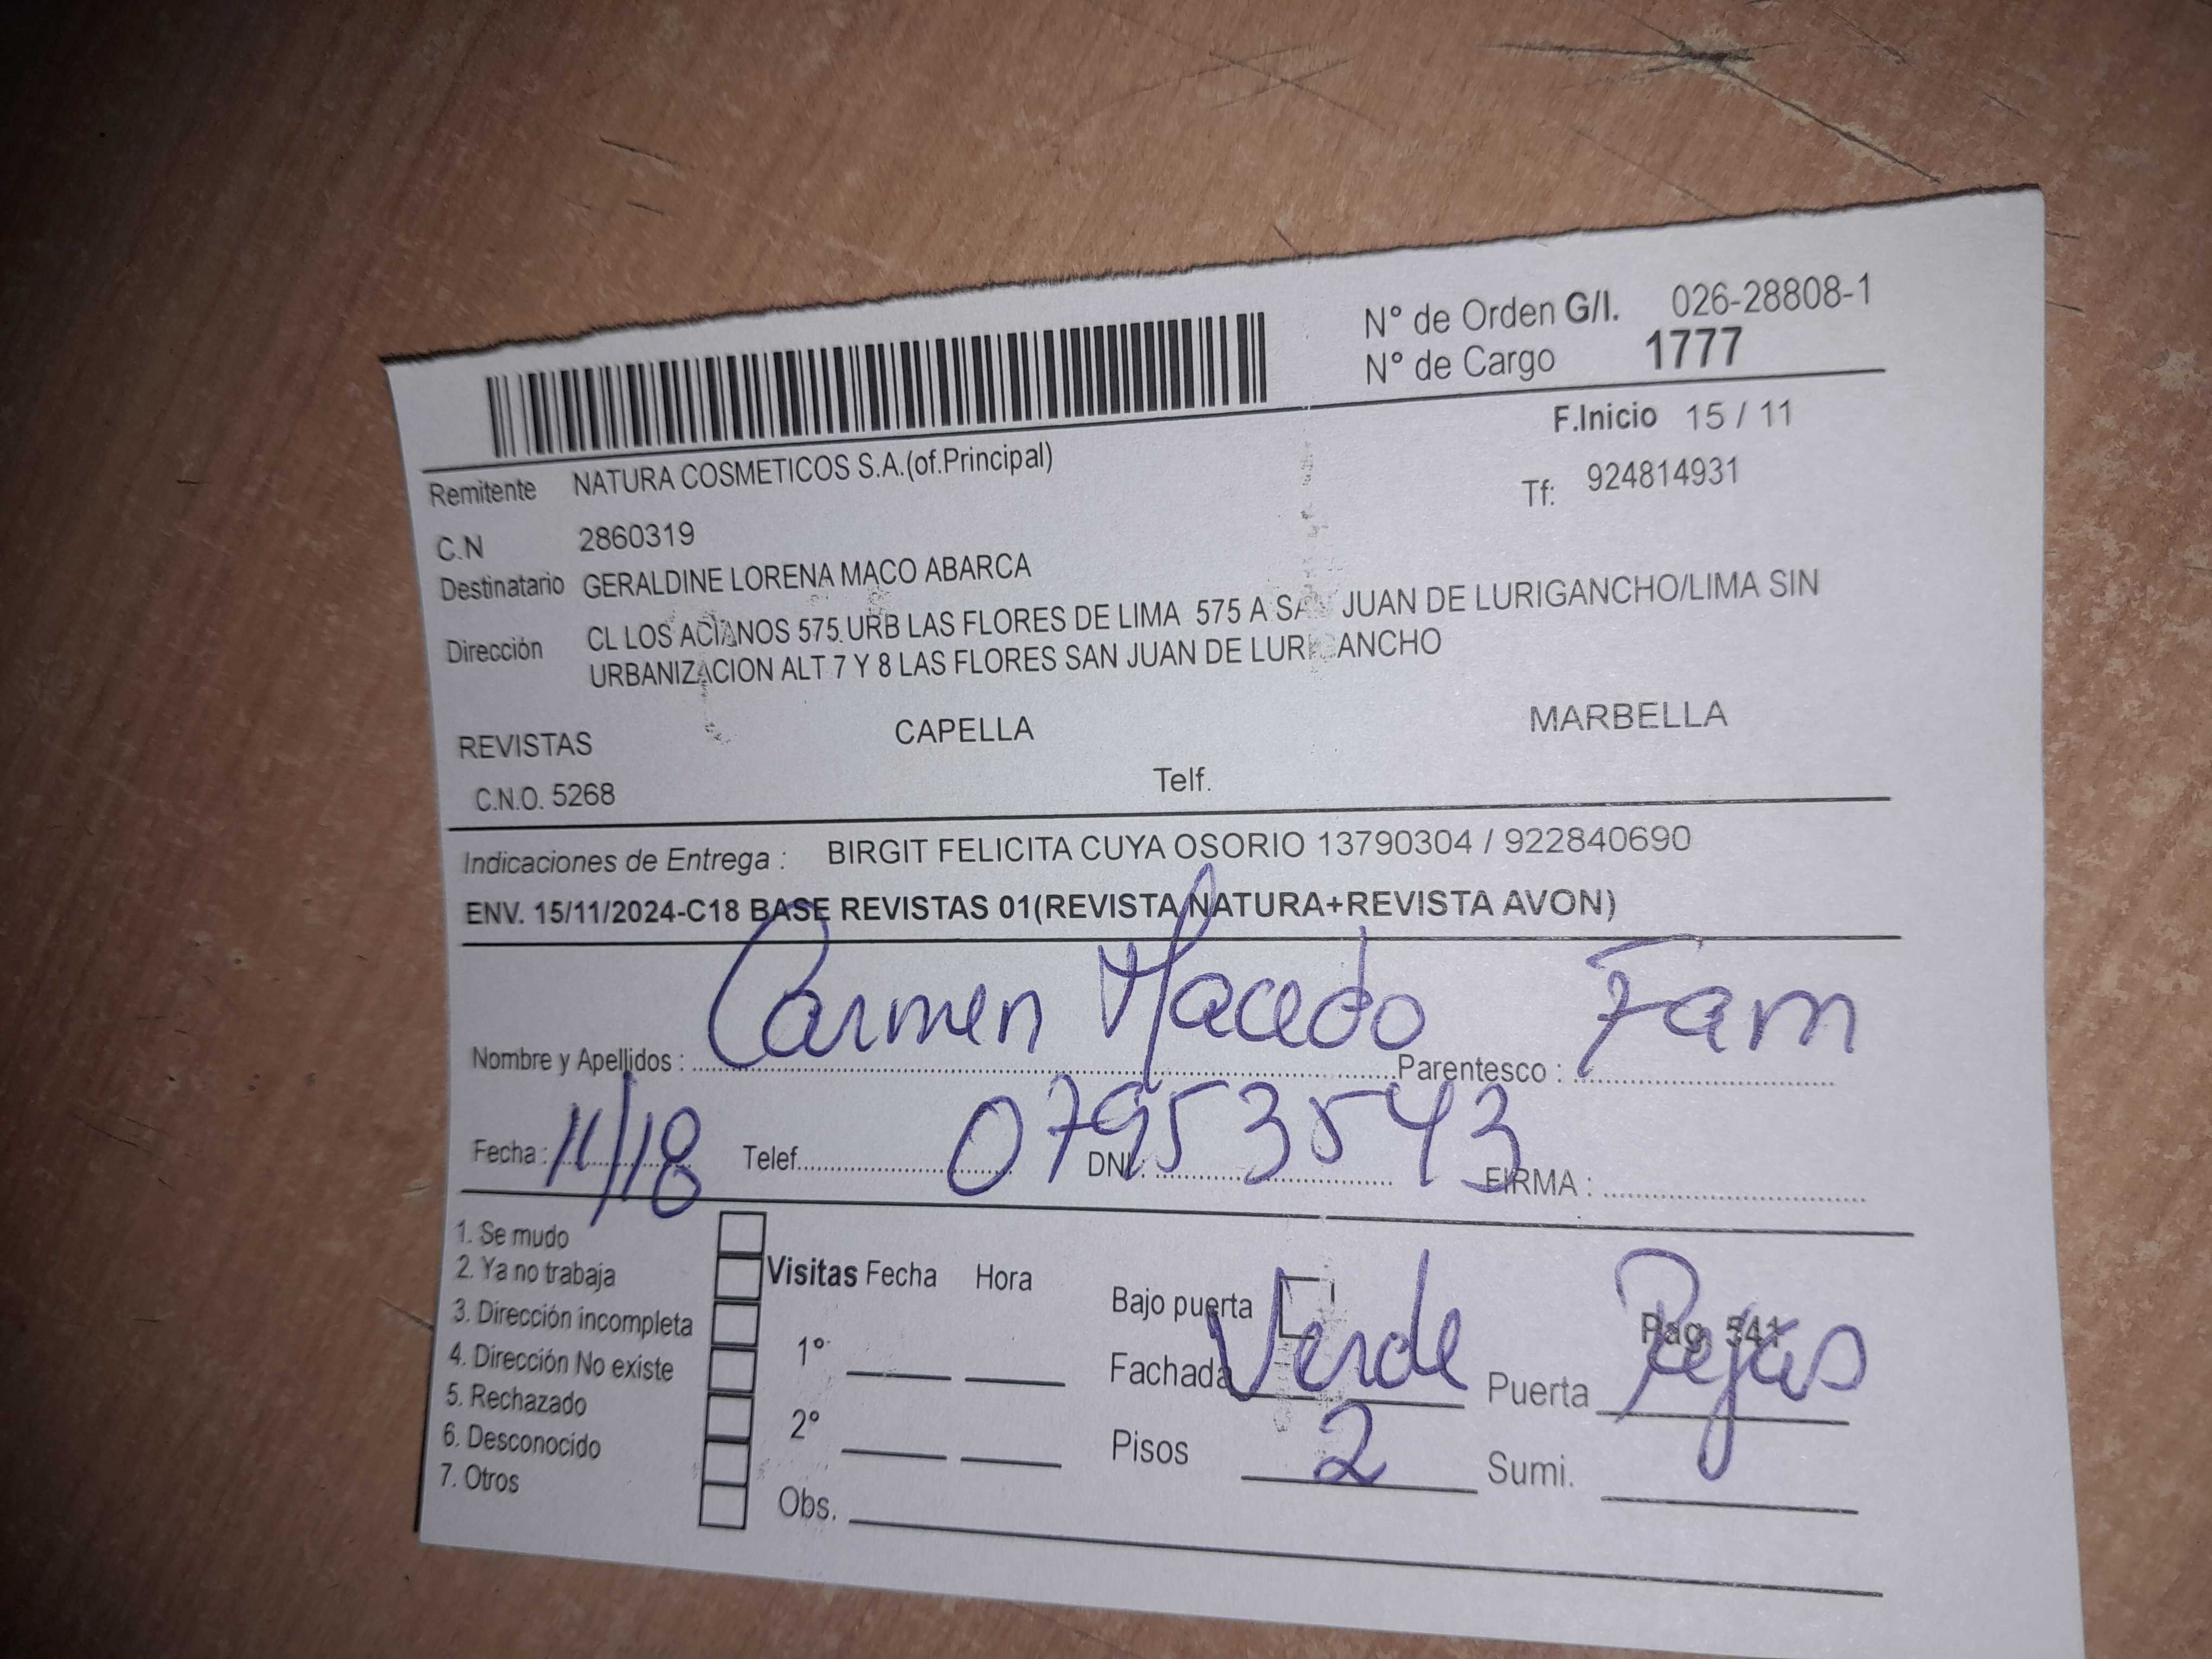 N° de Orden G/I. 026-28808-1
N° de Cargo 1777
F.Inicio 15 / 11
Remitente NATURA COSMETICOS S.A.(of.Principal)
Tf: 924814931
C.N 2860319
Destinatario GERALDINE LORENA MACO ABARCA
Dirección CL LOS ACIANOS 575 URB LAS FLORES DE LIMA 575 A SAN JUAN DE LURIGANCHO/LIMA SIN
URBANIZACION ALT 7 Y 8 LAS FLORES SAN JUAN DE LURIGANCHO
REVISTAS CAPELLA MARBELLA
C.N.O. 5268 Telf.
Indicaciones de Entrega : BIRGIT FELICITA CUYA OSORIO 13790304 / 922840690
ENV. 15/11/2024-C18 BASE REVISTAS 01(REVISTA NATURA+REVISTA AVON)
Nombre y Apellidos : Carmen Macedo Parentesco : Fam
Fecha : 11/18 Telef. DNI : 07953543 FIRMA :
1. Se mudo
2. Ya no trabaja
3. Dirección incompleta
4. Dirección No existe
5. Rechazado
6. Desconocido
7. Otros
Visitas Fecha Hora
1°
2°
Obs.
Bajo puerta
Pag 541
Fachada Verde Puerta Rejas
Pisos 2 Sumi.